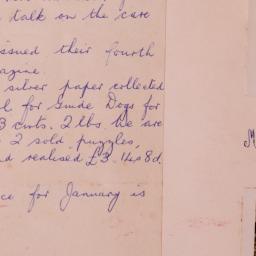 talk on the care
issued their fourth
magazine.
silver paper collected
for Guide Dogs for
3 cwts. 2 lbs. We are
2 sold puzzles,
realised £3. 14s 8d.
for January is
M